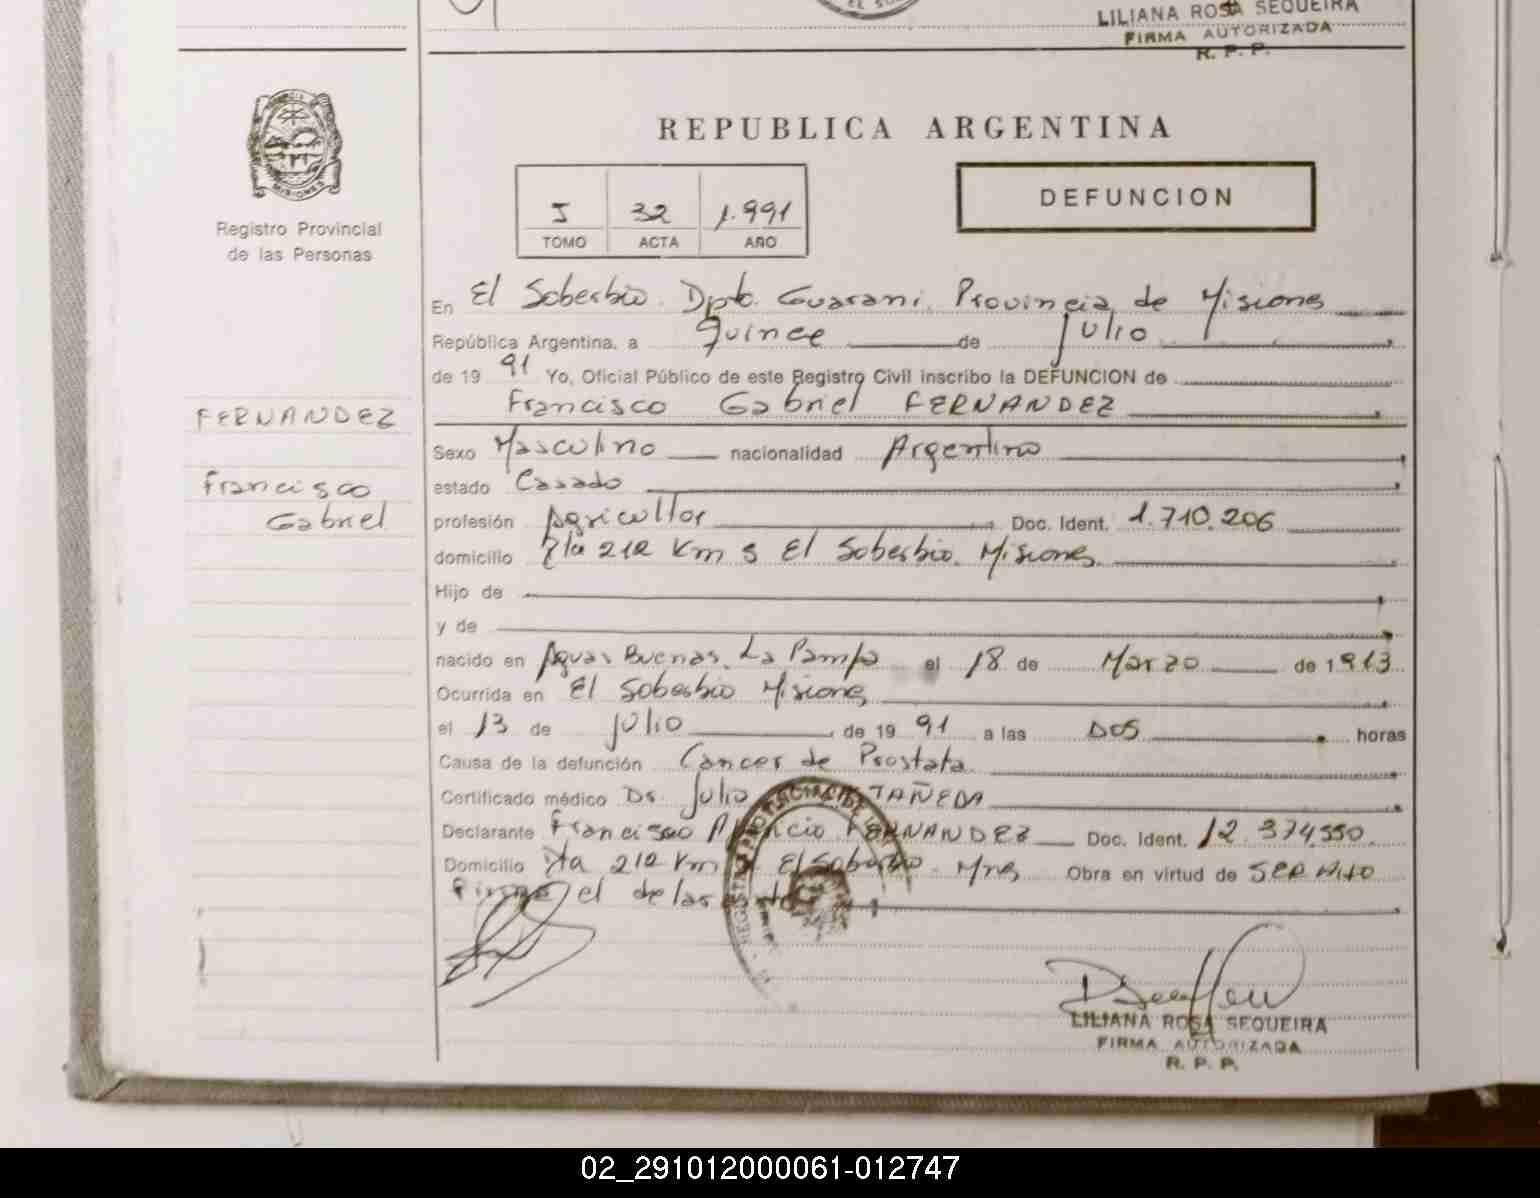 LILIANA ROSA SEQUEIRA
FIRMA AUTORIZADA
R. P. P.
MISIONES
Registro Provincial
de las Personas
REPUBLICA ARGENTINA
I 32 1.991
TOMO ACTA AÑO
DEFUNCION
En El Soberbio. Dpto. Guarani. Provincia de Misiones
República Argentina, a quince de julio
de 19 91 Yo, Oficial Público de este Registro Civil inscribo la DEFUNCION de
Francisco Gabriel FERNANDEZ
FERNANDEZ
Francisco
Gabriel
Sexo Masculino nacionalidad Argentino
estado Casado
profesión Agricultor Doc. Ident. 1.710.206
domicilio Rta 212 Km 5 El Soberbio. Misiones
Hijo de
y de
nacido en Aguas Buenas. La Pampa el 18 de Marzo de 1913
Ocurrida en El Soberbio Misiones
el 13 de julio de 19 91 a las Dos horas
Causa de la defunción Cancer de Prostata
Certificado médico Dr. Julio TAÑEDA
Declarante Francisco FERNANDEZ Doc. Ident. 12.374.550
Domicilio Rta 212 Km El Soberbio. Mnes Obra en virtud de SER HIJO
Firma el declarante
LILIANA ROSA SEQUEIRA
FIRMA AUTORIZADA
R. P. P.
02_291012000061-012747